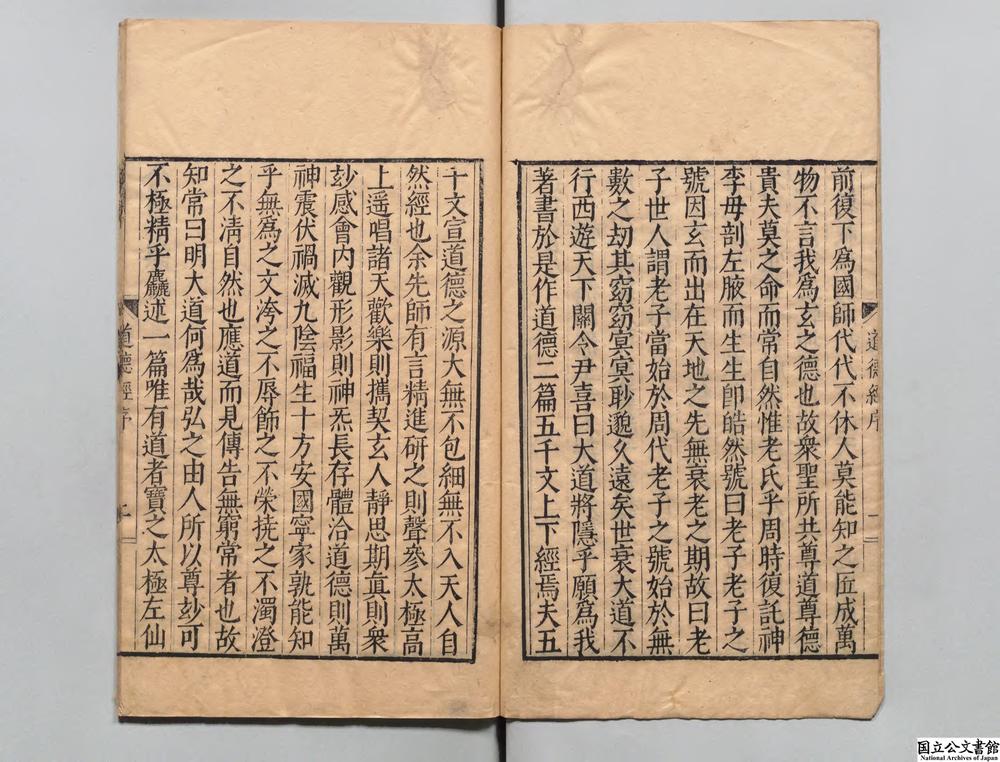 前復下爲國師代代不休人莫能知之匠成萬
物不言我爲玄之德也故衆聖所共尊道尊德
貴夫莫之命而常自然惟老氏乎周時復託神
李母剖左腋而生生即皓然號曰老子老子之
號因玄而出在天地之先無衰老之期故曰老
子世人謂老子當始於周代老子之號始於無
數之劫其窈窈冥冥眇邈久遠矣世衰大道不
行西遊天下關令尹喜曰大道將隱乎願爲我
著書於是作道德二篇五千文上下經焉夫五
道德經序
一
千文宣道德之源大無不包細無不入天人自
然經也余先師有言精進研之則聲參太極高
上遥唱諸天歡樂則攜契玄人靜思期眞則衆
玅感會内觀形影則神炁長存體洽道德則萬
神震伏禍滅九陰福生十方安國寧家孰能知
乎無爲之文洿之不辱飾之不榮撓之不濁澄
之不淸自然也應道而見傳告無窮常者也故
知常曰明大道何爲哉弘之由人所以尊玅可
不極精乎麤述一篇唯有道者寶之太極左仙
道德經序